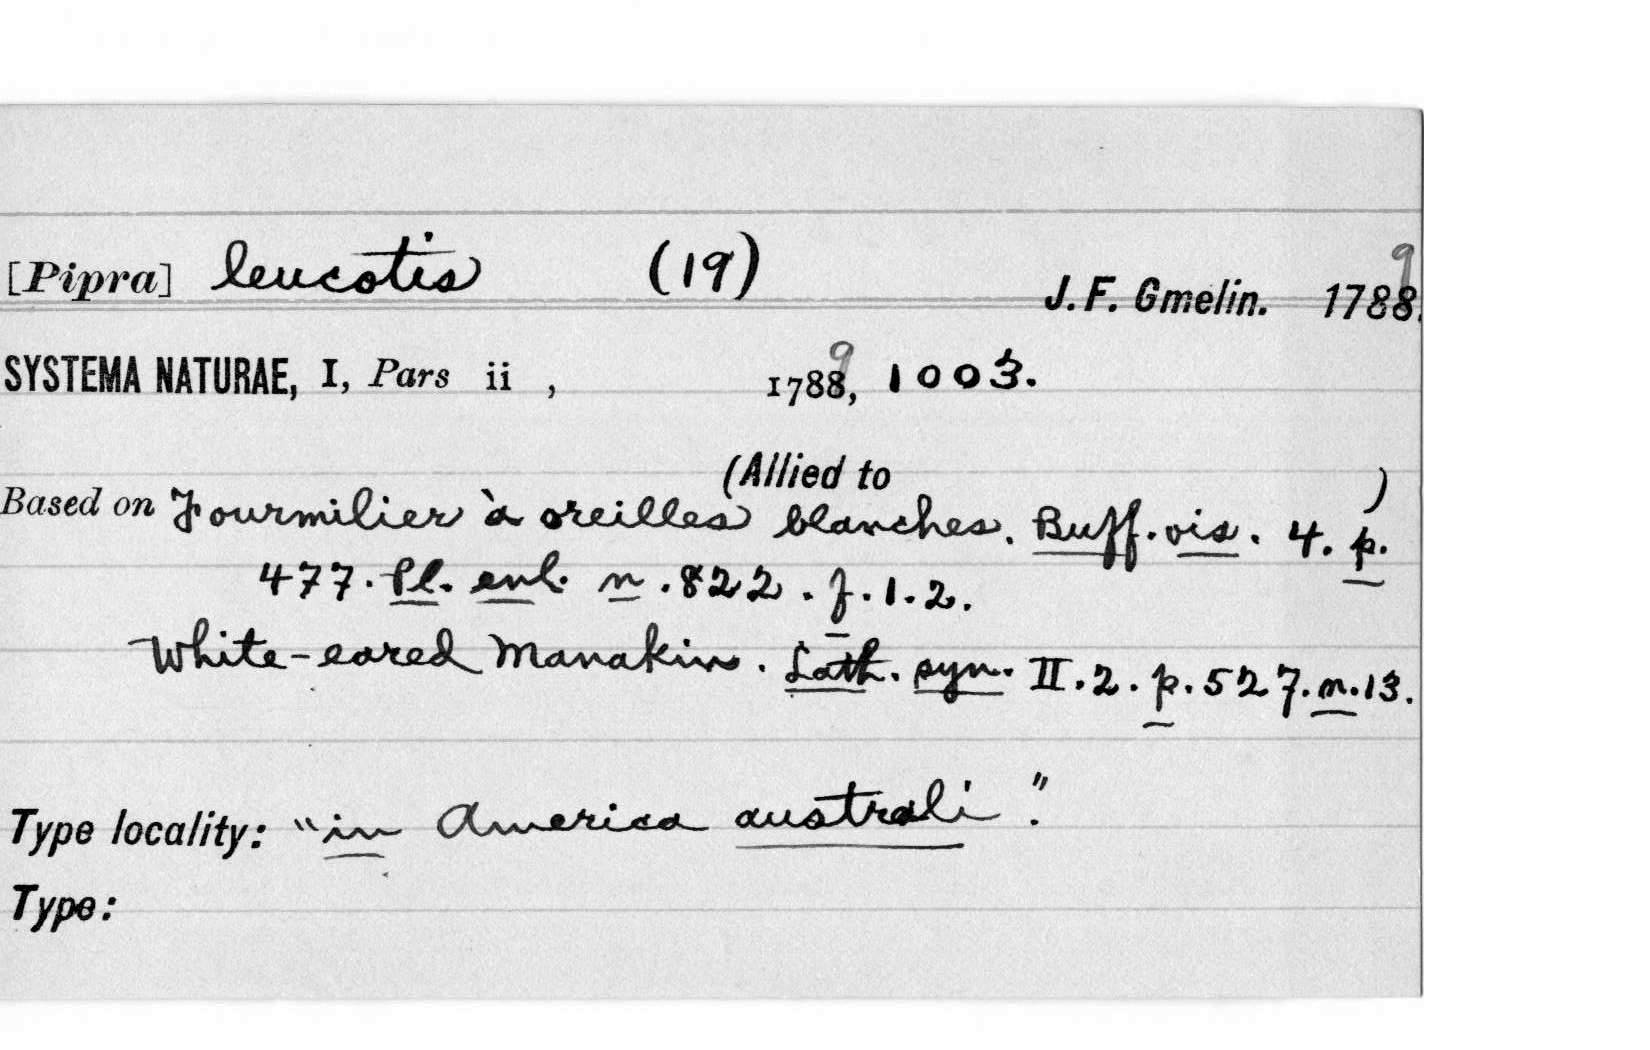 [Pipra] leucotis (19) J. F. Gmelin. 17889.
SYSTEMA NATURAE, I, Pars ii , 17889, 1003.
(Allied to )
Based on Fourmilier à oreilles blanches. Buff. ois. 4. p.
477. Pl. enl. n. 822. f. 1. 2.
White-eared Manakin. Lath. syn. II. 2. p. 527. n. 13.
Type locality: "in America australi".
Type: